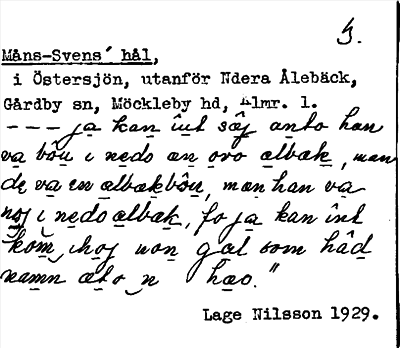 3.
Måns-Svens´ hål,
i Östersjön, utanför Ndera Ålebäck,
Gårdby sn, Möckleby hd, Almr. l.
--- ja kan int säj anto han
va bôu i nedo än ovo albäk, man
de va en albäkbôu, man han va
noj i nedo albäk, fo ja kan int
kom ihoj non gat som håd
namn äto n hao."
Lage Nilsson 1929.